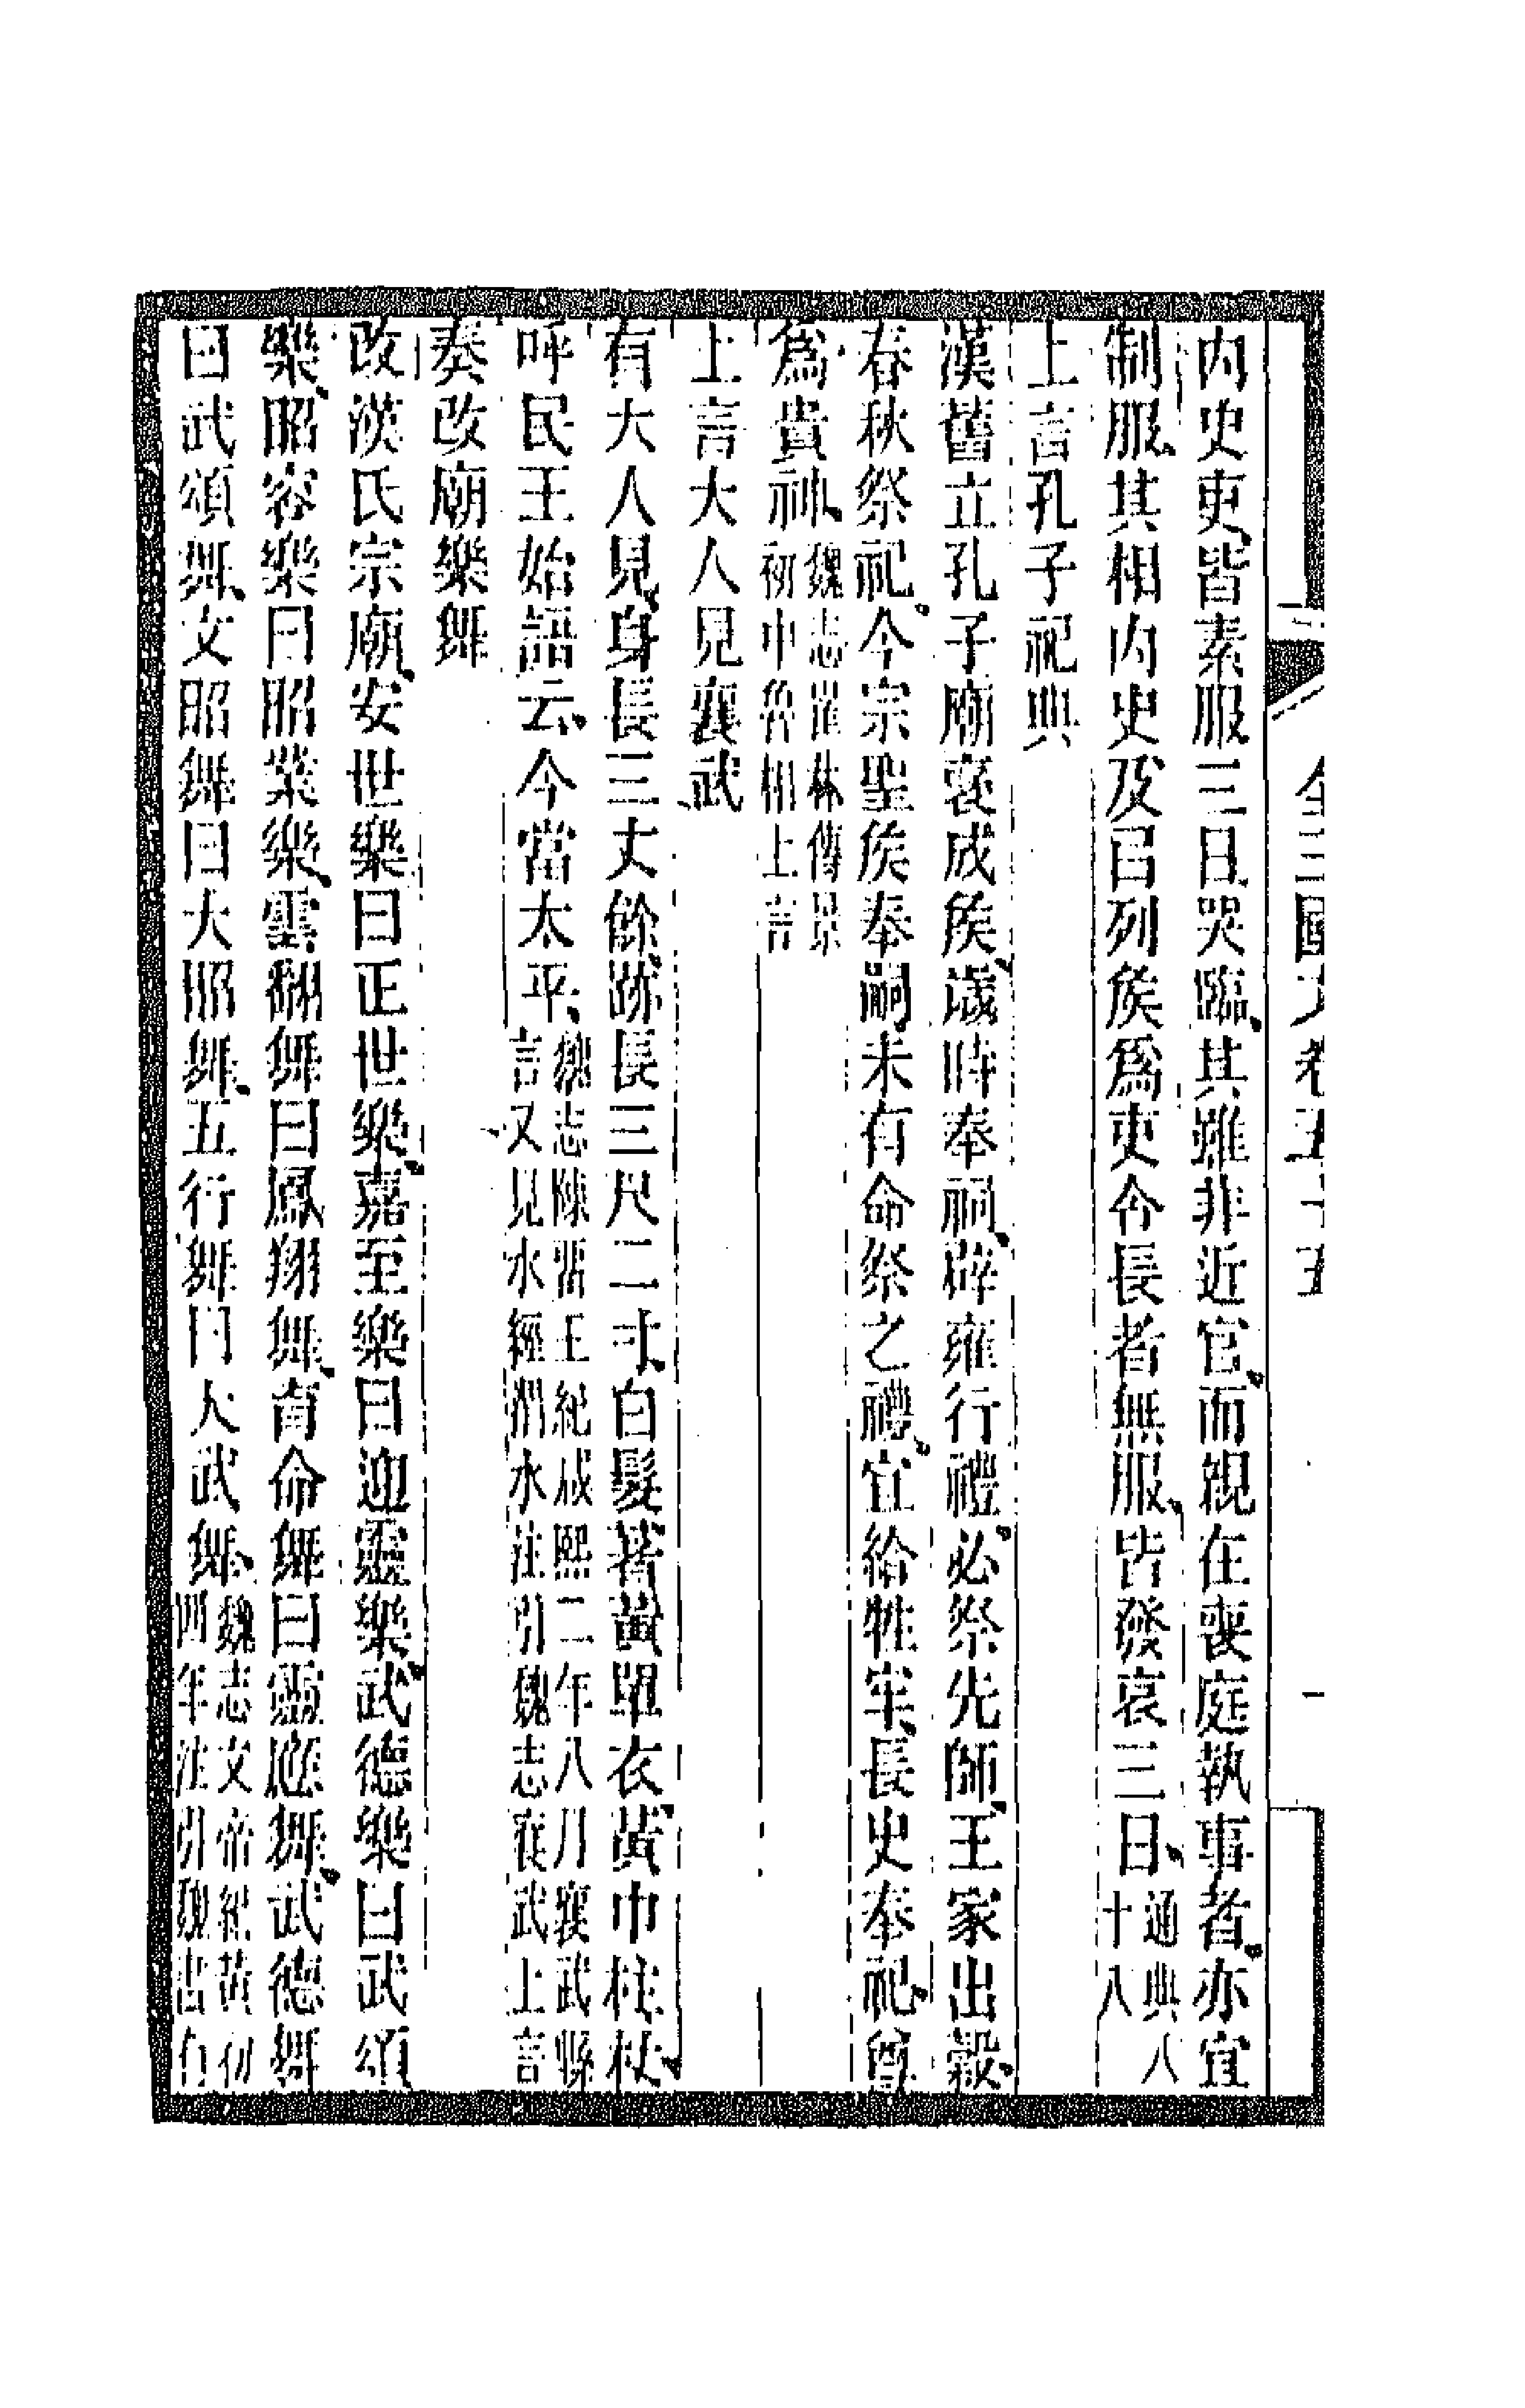 全三國文卷五十五
一
內史吏、皆素服三日哭臨、其雖非近官、而親在喪庭執事者、亦宜
制服、其相內史及㠯列矦爲吏令長者無服、皆發哀三日、通典八
十八
上言孔子祀典
漢舊立孔子廟、襃成矦、歲時奉祠、辟雍行禮、必祭先師、王家出穀、
春秋祭祀、今宗聖矦奉嗣、未有命祭之禮、宜給牲牢、長史奉祀、尊
爲貴神、魏志崔林傳景
初中魯相上言
上言大人見襄武
有大人見、身長三丈餘、跡長三尺二寸、白髮、著黃單衣、黃巾、柱杖、
呼民王始語云、今當太平、魏志陳留王紀咸熙二年八月襄武縣
言又見水經渭水注引魏志襄武上言
奏改廟樂舞
改漢氏宗廟、安世樂曰正世樂、嘉至樂曰迎靈樂、武德樂曰武頌
樂、昭容樂曰昭業樂、雲翻舞曰鳳翔舞、育命舞曰靈應舞、武德舞
曰武頌舞、文昭舞曰大昭舞、五行舞曰大武舞、魏志文帝紀黃初
四年注引魏書有